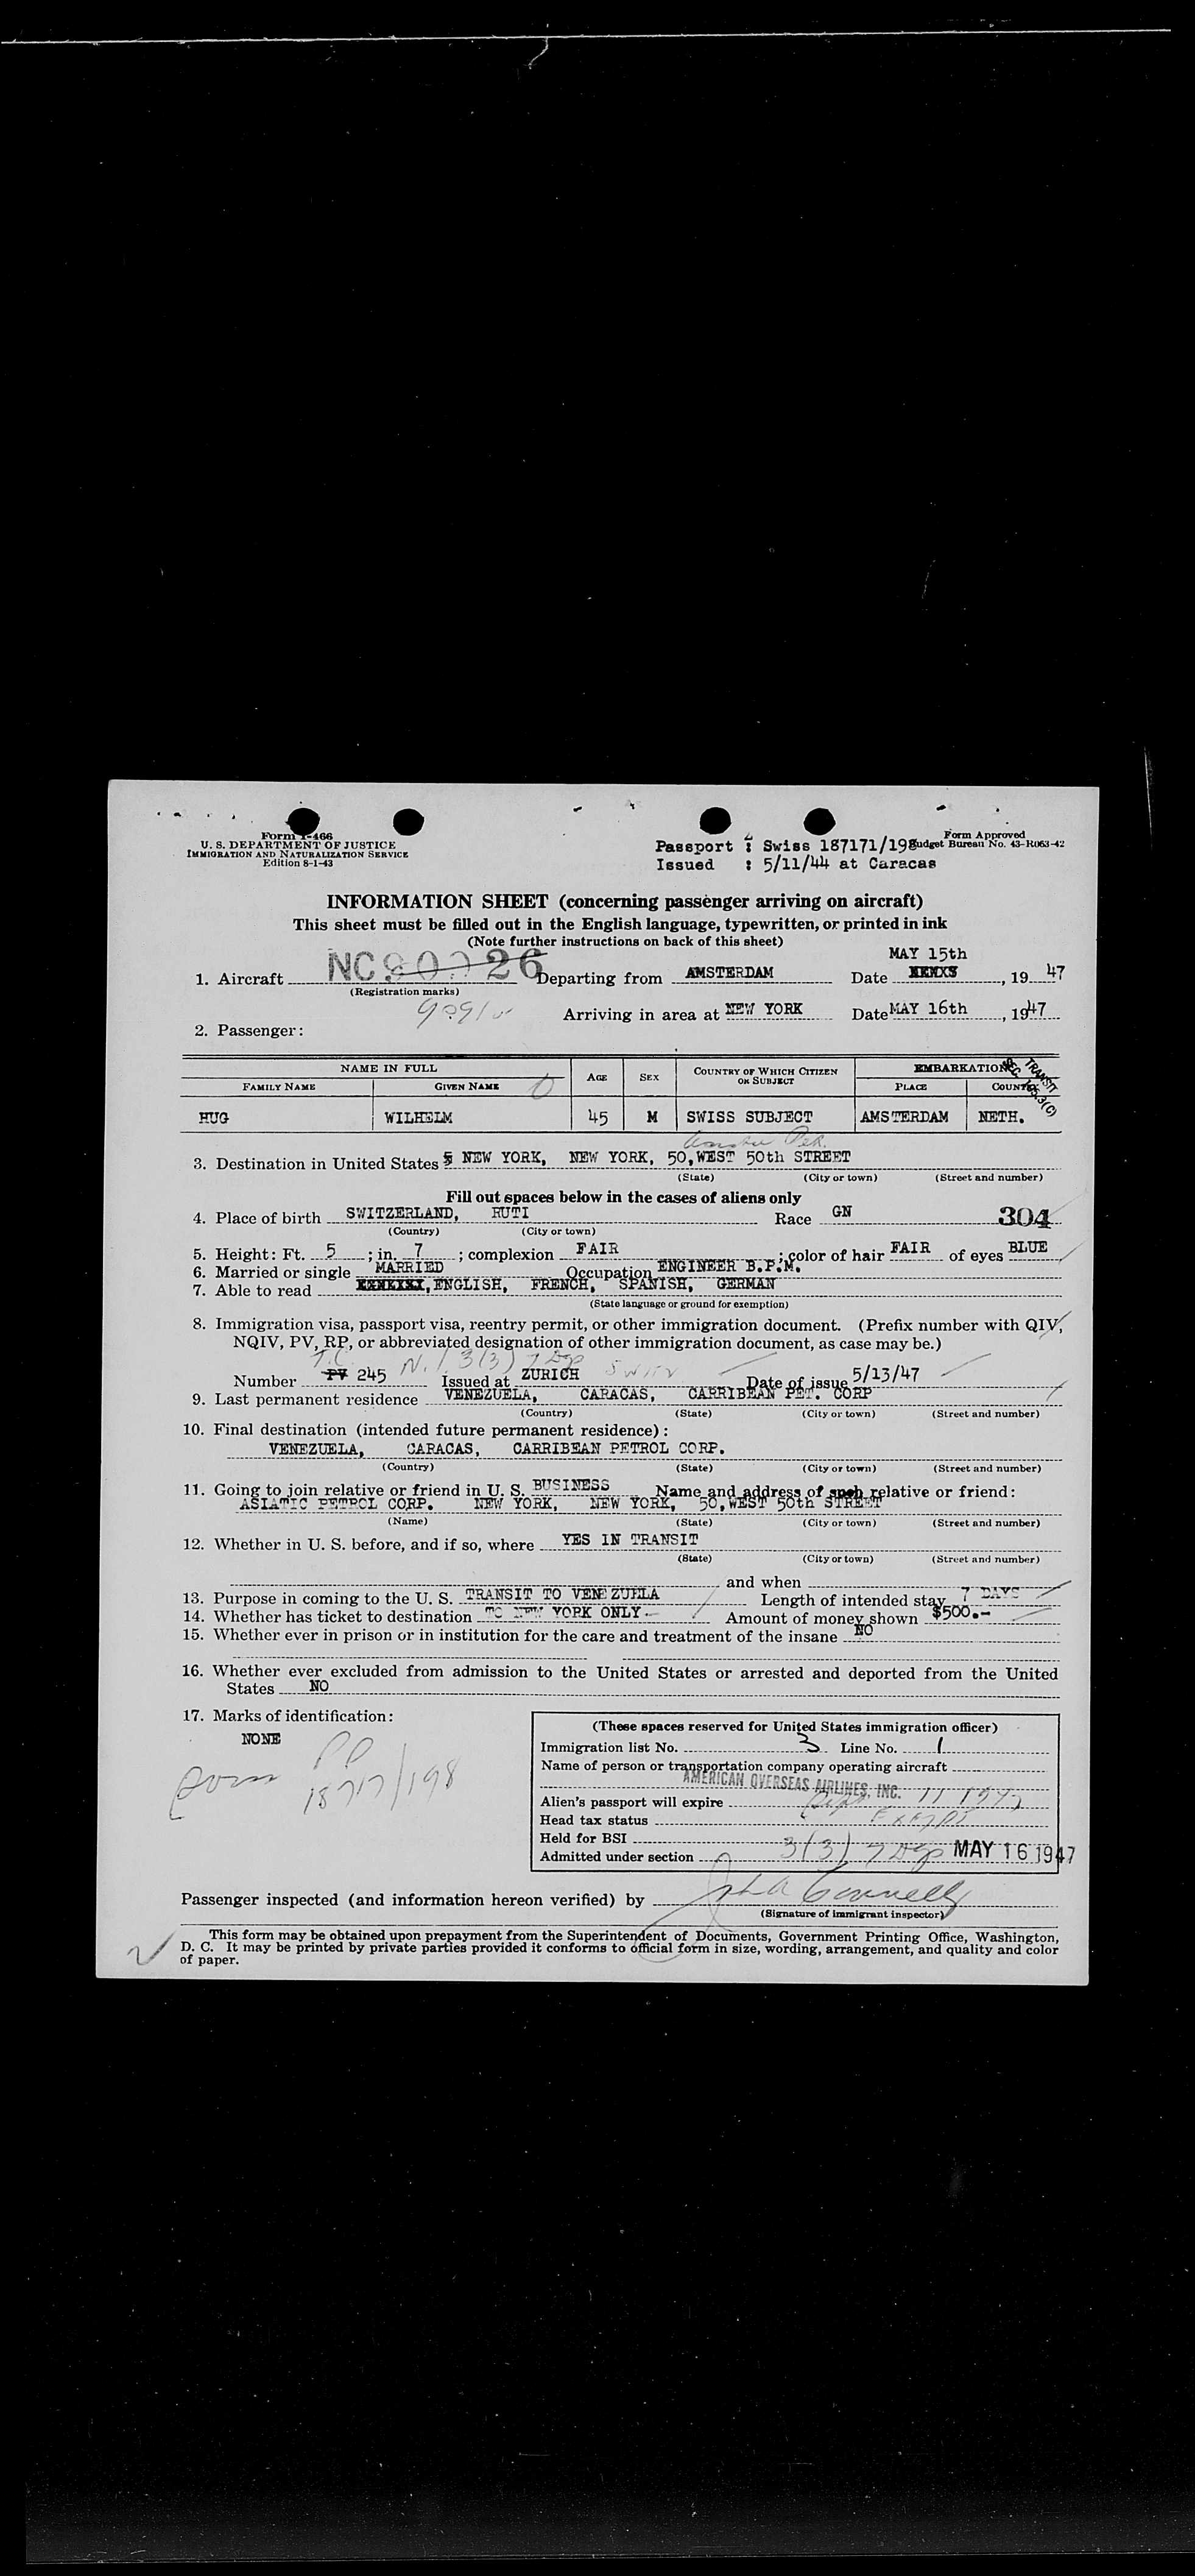 Form I-466
U. S. DEPARTMENT OF JUSTICE
IMMIGRATION AND NATURALIZATION SERVICE
Edition 8-1-43
Passport : Swiss 187171/198
Form Approved
Budget Bureau No. 43-R063-42
Issued : 5/11/44 at Caracas
INFORMATION SHEET (concerning passenger arriving on aircraft)
This sheet must be filled out in the English language, typewritten, or printed in ink
(Note further instructions on back of this sheet)
MAY 15th
1. Aircraft NC 90926 Departing from AMSTERDAM Date , 19 47
(Registration marks)
Arriving in area at NEW YORK Date MAY 16th , 1947
2. Passenger:
NAME IN FULL AGE SEX COUNTRY OF WHICH CITIZEN OR SUBJECT EMBARKATION
FAMILY NAME GIVEN NAME PLACE COUNTRY
TRANSIT
SEC. 165.3(C)
HUG WILHELM 45 M SWISS SUBJECT AMSTERDAM NETH.
3. Destination in United States NEW YORK, NEW YORK, 50,WEST 50th STREET
(State) (City or town) (Street and number)
Fill out spaces below in the cases of aliens only
4. Place of birth SWITZERLAND, RUTI Race GN 304
(Country) (City or town)
5. Height: Ft. 5 ; in. 7 ; complexion FAIR ; color of hair FAIR of eyes BLUE
6. Married or single MARRIED Occupation ENGINEER B.P.M.
7. Able to read ENGLISH, FRENCH, SPANISH, GERMAN
(State language or ground for exemption)
8. Immigration visa, passport visa, reentry permit, or other immigration document. (Prefix number with QIV,
NQIV, PV, RP, or abbreviated designation of other immigration document, as case may be.)
T.C. N.I. 3(3) 7 Dys Swiss
Number PV 245 Issued at ZURICH Date of issue 5/13/47
9. Last permanent residence VENEZUELA, CARACAS, CARRIBEAN PET. CORP
(Country) (State) (City or town) (Street and number)
10. Final destination (intended future permanent residence):
VENEZUELA, CARACAS, CARRIBEAN PETROL CORP.
(Country) (State) (City or town) (Street and number)
11. Going to join relative or friend in U. S. BUSINESS Name and address of such relative or friend:
ASIATIC PETROL CORP. NEW YORK, NEW YORK, 50,WEST 50th STREET
(Name) (State) (City or town) (Street and number)
12. Whether in U. S. before, and if so, where YES IN TRANSIT
(State) (City or town) (Street and number)
and when
13. Purpose in coming to the U. S. TRANSIT TO VENEZUELA Length of intended stay 7 DAYS
14. Whether has ticket to destination TO NEW YORK ONLY.- Amount of money shown $500.-
15. Whether ever in prison or in institution for the care and treatment of the insane NO
16. Whether ever excluded from admission to the United States or arrested and deported from the United
States NO
17. Marks of identification:
NONE
PP
18717/198
(These spaces reserved for United States immigration officer)
Immigration list No. 3 Line No. 1
Name of person or transportation company operating aircraft
AMERICAN OVERSEAS AIRLINES, INC.
Alien's passport will expire Sept 11 1947
Head tax status Exempt
Held for BSI
Admitted under section 3(3) 7 Dys MAY 16 1947
Passenger inspected (and information hereon verified) by John A Connelly
(Signature of immigrant inspector)
This form may be obtained upon prepayment from the Superintendent of Documents, Government Printing Office, Washington,
D. C. It may be printed by private parties provided it conforms to official form in size, wording, arrangement, and quality and color
of paper.